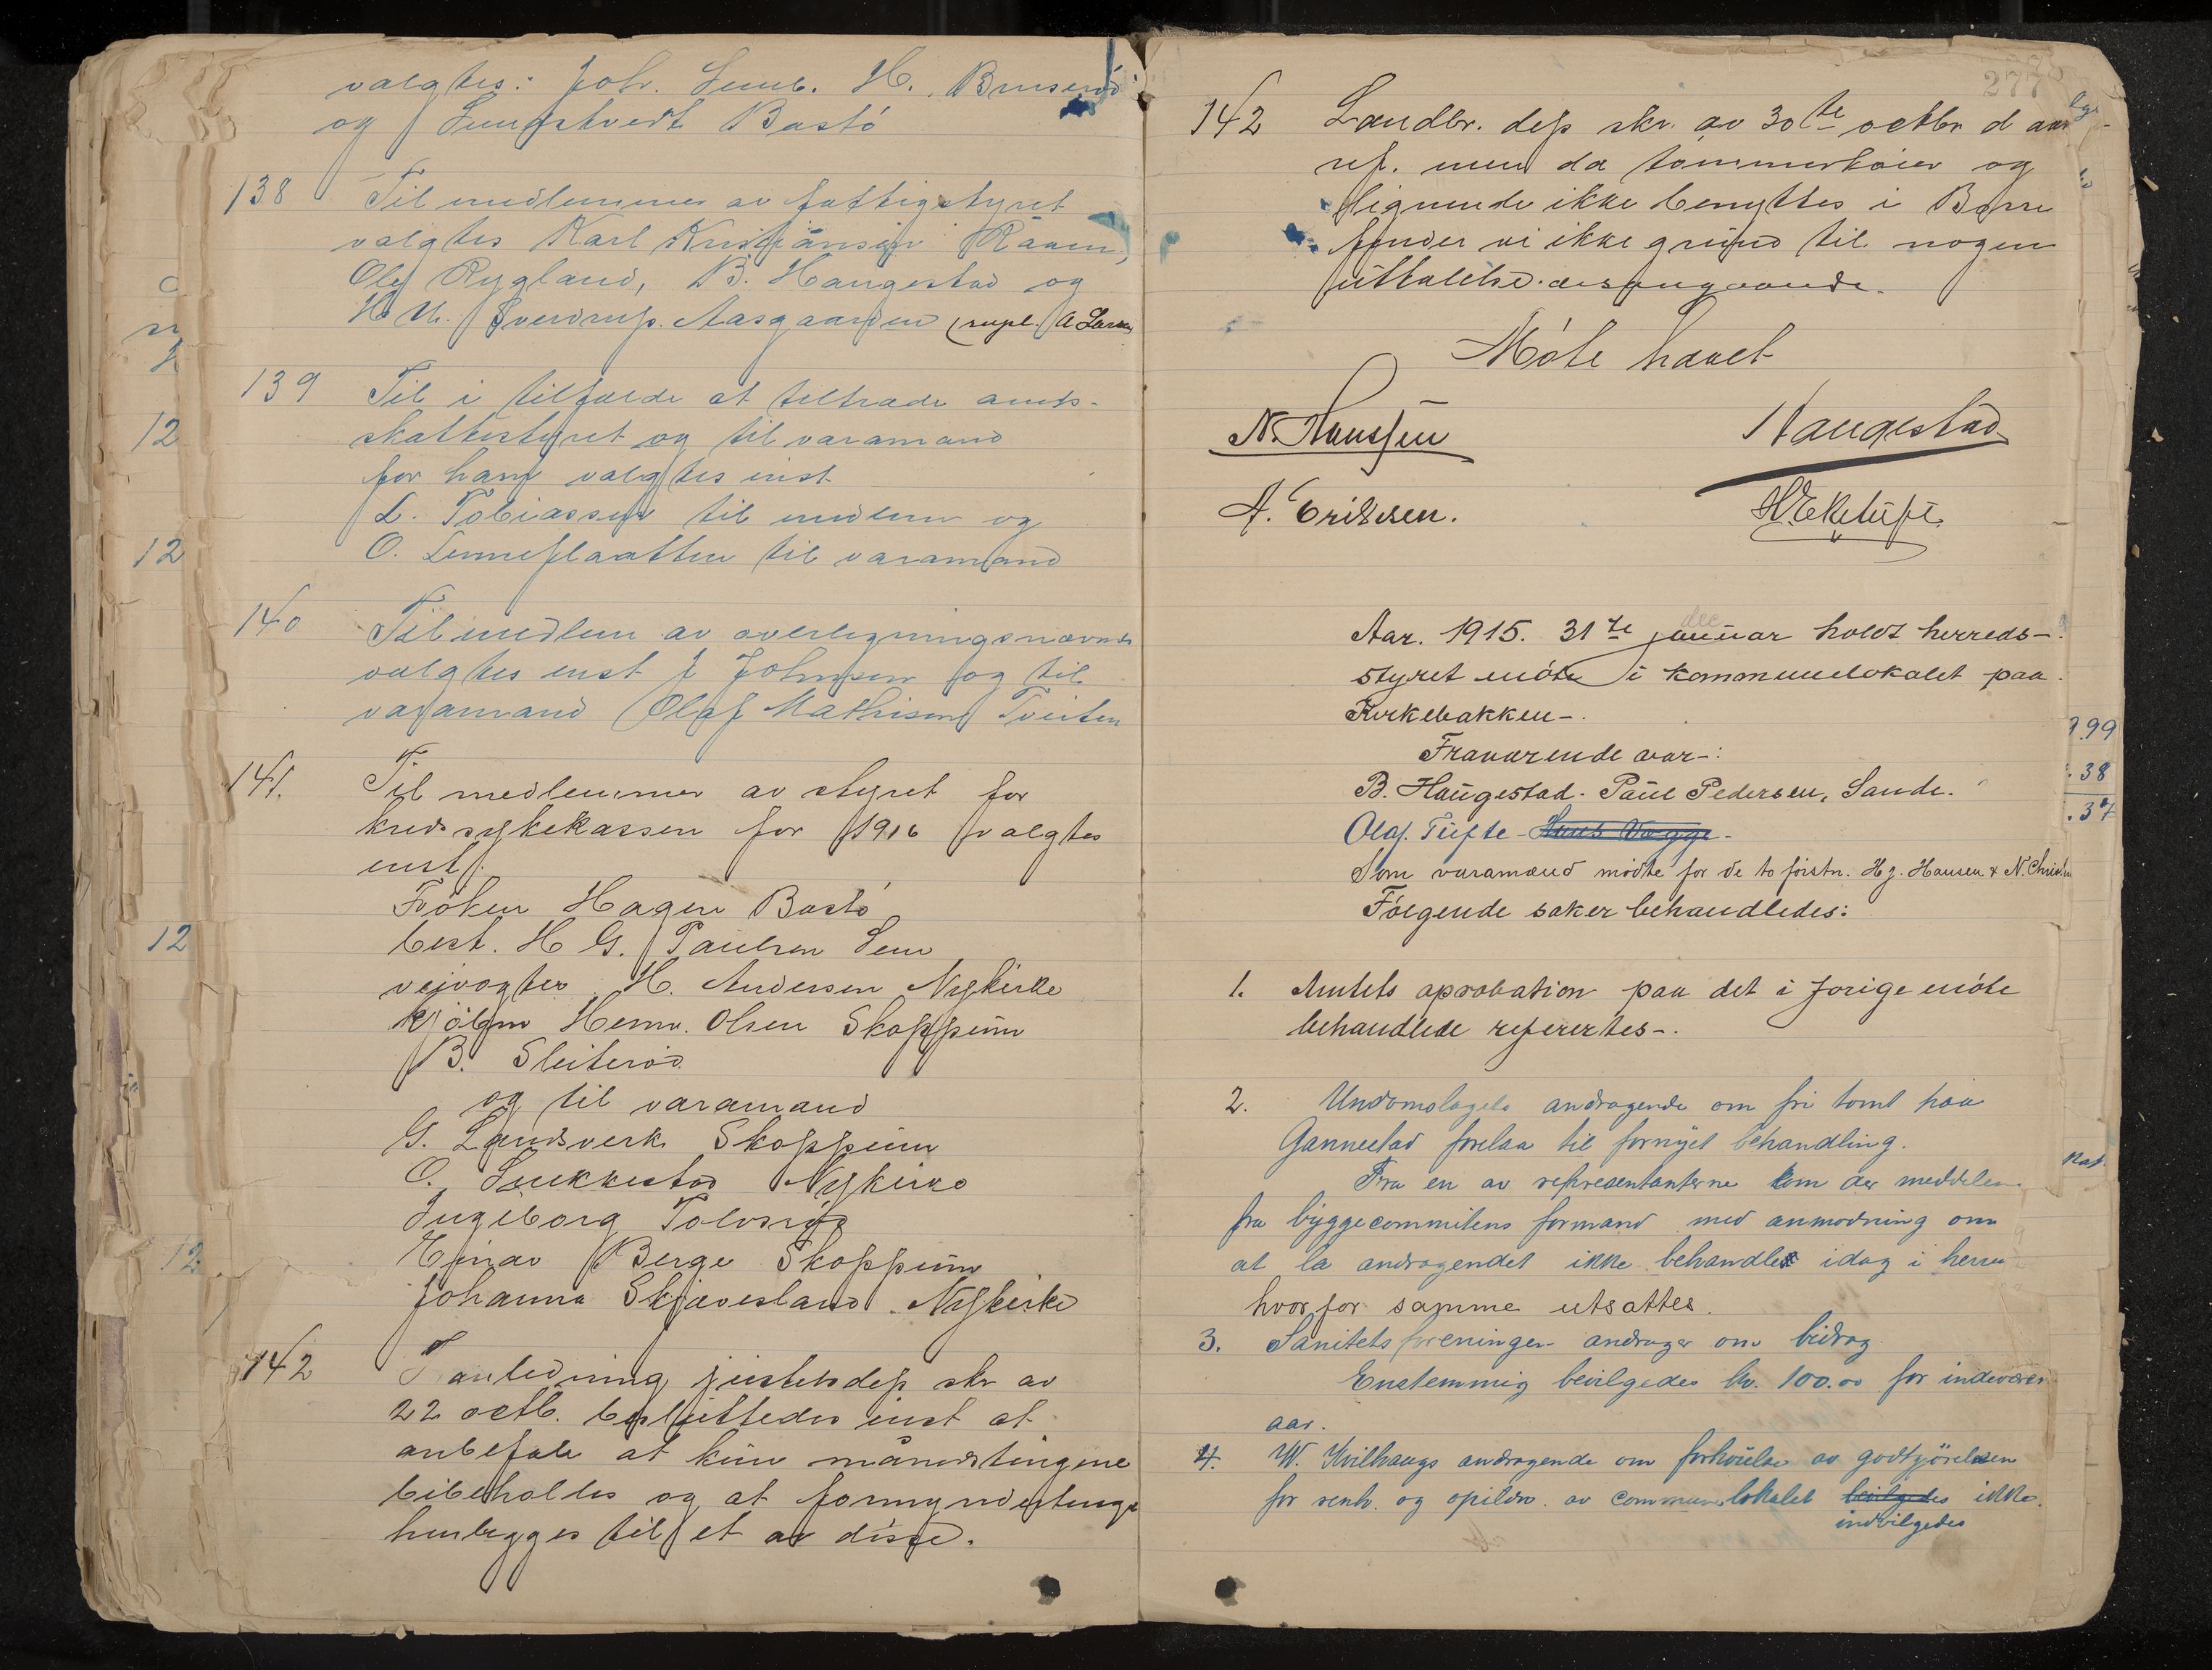 valgtes: Joh. Semb. H. Bruserød
og Sungstvedt Bastö
138 Til medlemmer av fattigstyret
valgtes Karl Kristiansen Raaen,
Ole Rygland, B. Haugestad og
H. U. Sverdrup. Aasgaarden (supl. A Larsen
139 Til i tilfælde at tiltræde amts-
skattestyret og til varamand
for ham valgtes enst
L. Tobiassen til medlem og
O. Lenneflaatten til varamand
140 Til medlem av overligningsnævnd
valgtes enst J Johnsen og til
varamand Olaf Mathisen Tveiten
141. Til medlemmer av styret for
kredssykekassen for 1916 valgtes
enst.
Frøken Hagen Bastö
best. H G. Paulsen Sem
veivogter H. Andersen Nykirke
kjøbm Henr. Olsen Skoppum
B. Sleiterød
og til varamænd
G. Landsverk Skoppum
O. Snekkestad Nykirke
Ingeborg Tolvsrød
Einar Berge Skoppum
Johanna Skjævesland Nykirke
142 I anledning justitsdep skr av
22 octb. besluttedes enst at
anbefale at kun maanedstingene
bibeholdes og at formyndertinge
henlegges til et av disse.
277
142 Landbr. dep skr. av 30te octbr d aar
ref. men da tømmerkøier og
lignende ikke benyttes i Borre
finder vi ikke grund til nogen
uttalelse desangaaende.
Møte hævet
N. Hanssen Haugestad
A. Eriksen. H. Ekeluft
dec
Aar. 1915. 31te januar holdt herreds-
styret møte i kommunelokalet paa
Kirkebakken-.
Fraværende var-:
B. Haugestad. Paul Pedersen, Sande.
Olaf. Tufte - Hans Vegge -
Som varamænd mødte for de to förstn. H. J. Hansen & N. Christen
Følgende saker behandledes:
1. Amtets aprobation paa det i forige møte
behandlede refererdes-.
2. Undomslagets andragende om fri tomt paa
Gannestad forelaa til fornyet behandling.
Fra en av repræsentanterne kom der meddelse
fra byggecommiteens formand med anmodning om
at la andragendet ikke behandles idag i herre
hvorfor samme utsattes.
3. Sanitetsforeningen andrager om bidrag
Enstemmig bevilgedes kr. 100.00 for indevære
aar.
4. W. Kvilhaugs andragende om forhøielse av godtgjörelsen
for renh. og opildn. av communelokalet bevilgedes ikke.
indvilgedes